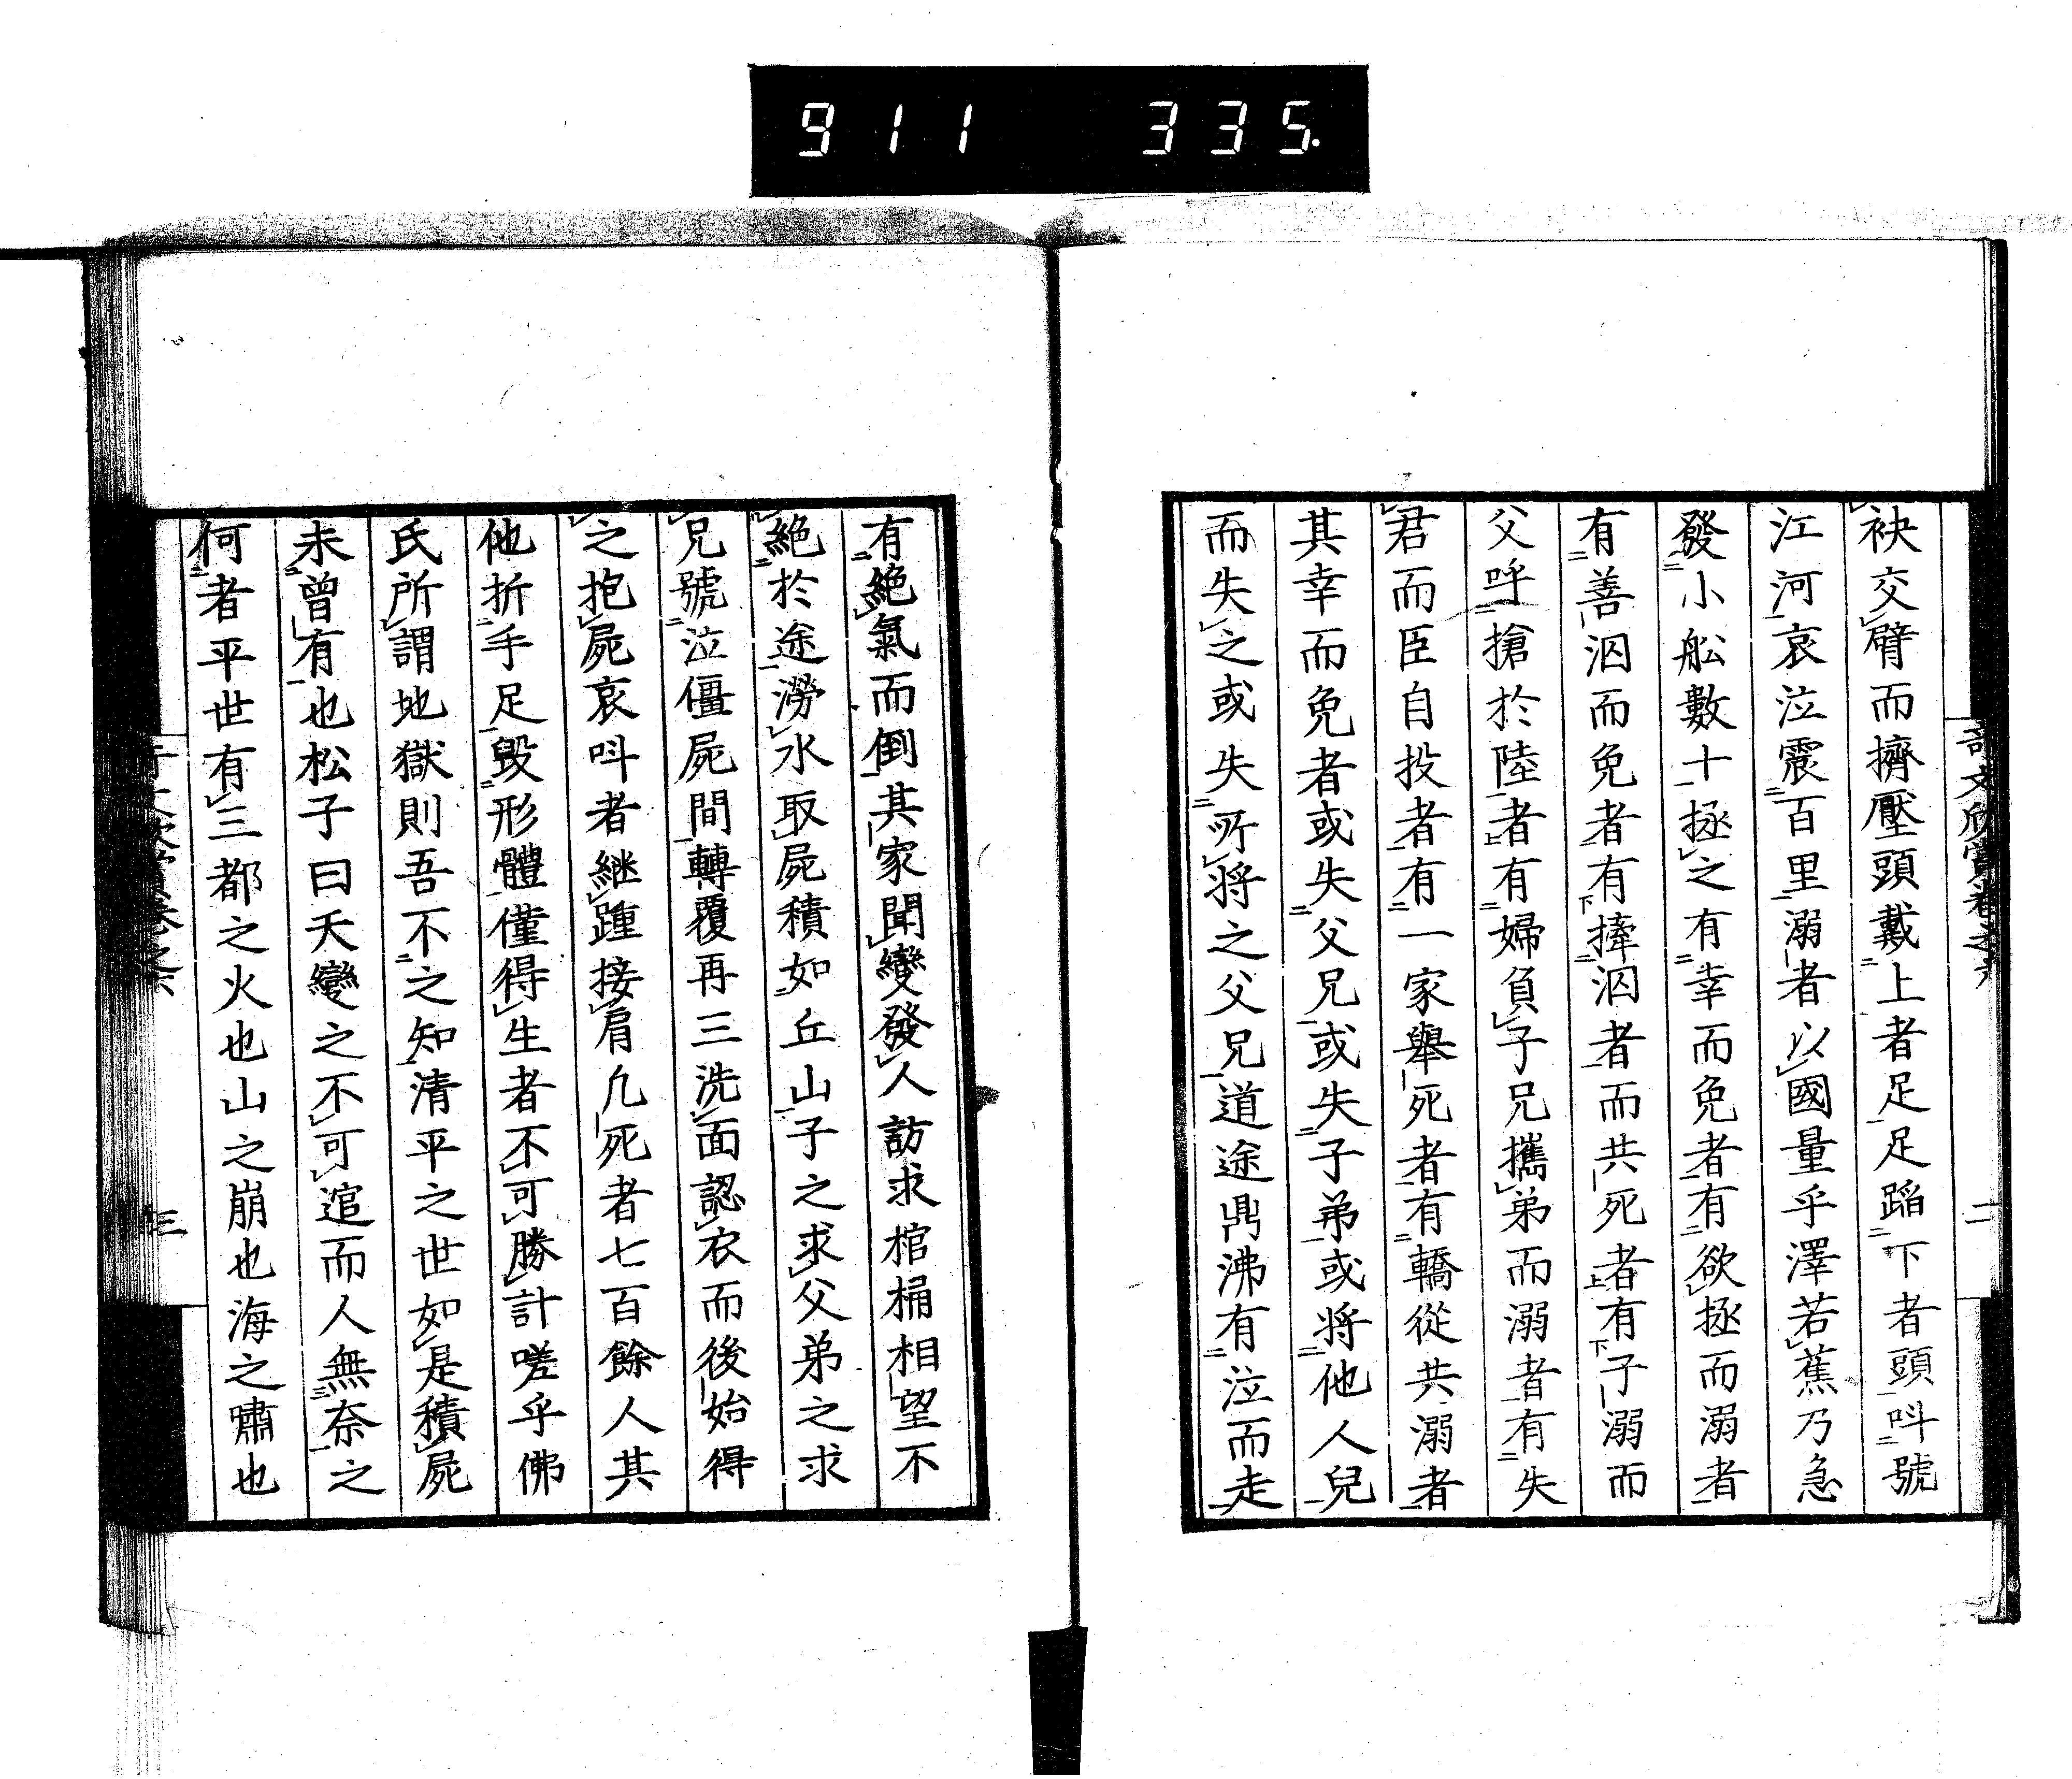 911 335.
袂交臂而擠壓頭戴上者足足蹈下者頭呌號
江河哀泣震百里溺者以國量乎澤若蕉乃急
發小舩數十拯之有幸而免者有欲拯而溺者
有善泅而免者有捧泅者而共死者有子溺而
父呼搶於陸者有婦負子兄攜弟而溺者有失
君而臣自投者有一家舉死者有轎從共溺者
其幸而免者或失父兄或失子弟或將他人兒
而失之或失所將之父兄道途鼎沸有泣而走
有絶氣而倒其家聞變發人訪求棺桶相望不
絶於途澇水取屍積如丘山子之求父弟之求
兄號泣僵屍間轉覆再三洗面認衣而後始得
之抱屍哀呌者継踵接肩凢死者七百餘人其
他折手足毀形體僅得生者不可勝計嗟乎佛
氏所謂地獄則吾不之知清平之世如是積屍
未曾有也松子曰天變之不可追而人無奈之
何者平世有三都之火也山之崩也海之嘯也
二
三